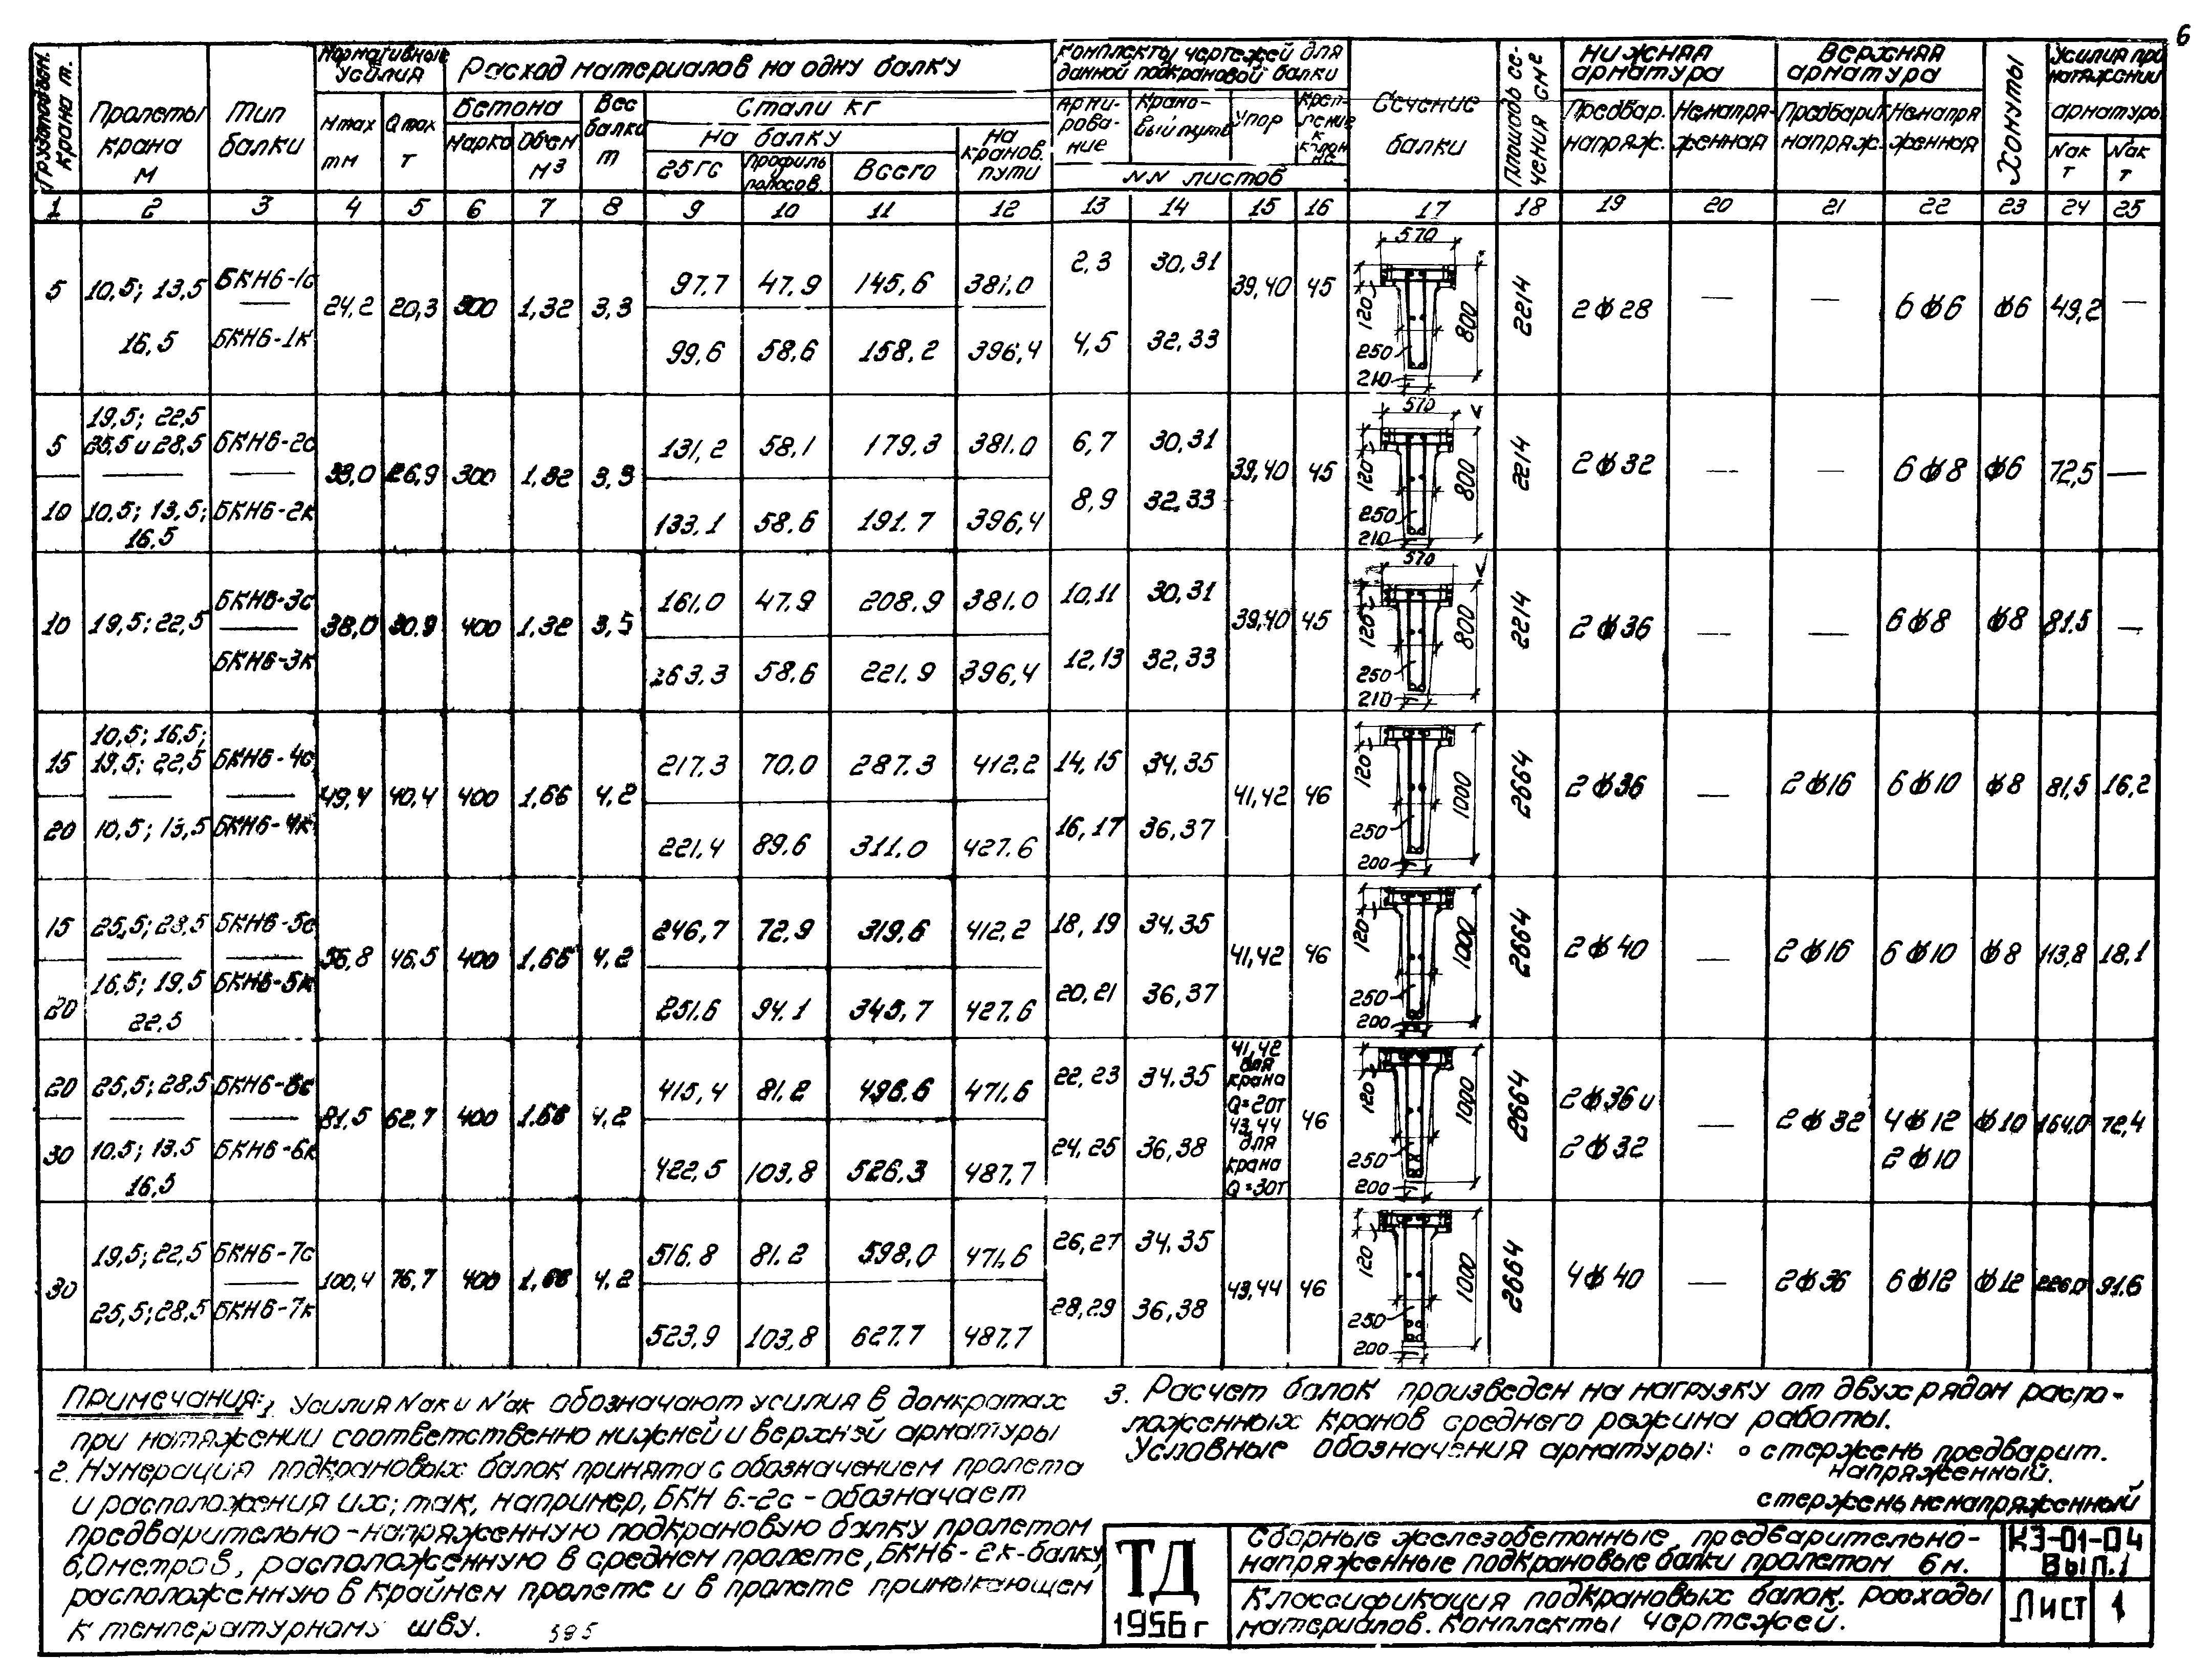 6
Грузоподъем. крана т.
Пролеты крана м
Тип балки
Нормативные усилия
М max тм
Q max т
Расход материалов на одну балку
Бетона
Марка
Объем м3
Вес балки т
Стали кг
На балку
25ГС
Профиль полосов.
Всего
На кранов. пути
Комплекты чертежей для данной подкрановой балки
Армирование
Крановый путь
Упор
Крепление к
NN листов
Сечение балки
Площадь сечения см2
Нижняя арматура
Предвар. напряж.
Ненапряженная
Верхняя арматура
Предварит. напряж.
Ненапряженная
Хомуты
Усилия при натяжении арматуры
Nак т
N'ак т
1 2 3 4 5 6 7 8 9 10 11 12 13 14 15 16 17 18 19 20 21 22 23 24 25
5 10,5; 13,5 16,5 БКН6-1с БКН6-1к 24,2 20,3 300 1,32 3,3
97,7 47,9 145,6 381,0 2,3 30,31
99,6 58,6 158,2 396,4 4,5 32,33
39,40 45 570 120 800 250 210 2214 2ф28 — — 6ф6 ф6 49,2 —
5 19,5; 22,5 25,5 и 28,5 БКН6-2с
10 10,5; 13,5; 16,5 БКН6-2к
33,0 26,9 300 1,32 3,3
131,2 58,1 179,3 381,0 6,7 30,31
133,1 58,6 191,7 396,4 8,9 32,33
39,40 45 570 120 800 250 210 2214 2ф32 — — 6ф8 ф6 72,5 —
10 19,5; 22,5 БКН6-3с БКН6-3к 38,0 30,9 400 1,32 3,3
161,0 47,9 208,9 381,0 10,11 30,31
263,3 58,6 221,9 396,4 12,13 32,33
39,40 45 570 120 800 250 210 2214 2ф36 — — 6ф8 ф8 81,5 —
15 10,5; 16,5; 19,5; 22,5 БКН6-4с
20 10,5; 13,5 БКН6-4к
49,4 40,4 400 1,66 4,2
217,3 70,0 287,3 412,2 14,15 34,35
221,4 89,6 311,0 427,6 16,17 36,37
41,42 46 120 1000 250 200 2664 2ф36 — 2ф16 6ф10 ф8 81,5 16,2
15 25,5; 28,5 БКН6-5с
20 16,5; 19,5 22,5 БКН6-5к
56,8 46,5 400 1,66 4,2
246,7 72,9 319,6 412,2 18,19 34,35
251,6 94,1 345,7 427,6 20,21 36,37
41,42 46 120 1000 250 200 2664 2ф40 — 2ф16 6ф10 ф8 113,8 18,1
20 25,5; 28,5 БКН6-6с
30 10,5; 13,5 16,5 БКН6-6к
81,5 62,7 400 1,66 4,2
415,4 81,2 496,6 471,6 22,23 34,35
422,5 103,8 526,3 487,7 24,25 36,38
41,42 для крана Q=20т 43,44 для крана Q=30т
46 120 1000 250 200 2664 2ф36 и 2ф32 — 2ф32 4ф12 2ф10 ф10 164,0 72,4
30 19,5; 22,5 БКН6-7с
25,5; 28,5 БКН6-7к
100,4 76,7 400 1,66 4,2
516,8 81,2 598,0 471,6 26,27 34,35
523,9 103,8 627,7 487,7 28,29 36,38
43,44 46 120 1000 250 200 2664 4ф40 — 2ф36 6ф12 ф12 226,0 91,6
Примечания: 1. Усилия Nак и N'ак обозначают усилия в домкратах
при натяжении соответственно нижней и верхней арматуры
2. Нумерация подкрановых балок принята с обозначением пролета
и расположения их; так, например, БКН 6-2с - обозначает
предварительно-напряженную подкрановую балку пролетом
6,0 метров, расположенную в среднем пролете, БКН6-2к-балку,
расположенную в крайнем пролете и в пролете примыкающем
к температурному шву.
595
3. Расчет балок произведен на нагрузку от двух рядом распо-
ложенных кранов среднего режима работы.
Условные обозначения арматуры: о стержень предварит.
напряженный.
стержень ненапряженный
ТД
1956г
Сборные железобетонные предварительно-
напряженные подкрановые балки пролетом 6м.
Классификация подкрановых балок. расходы
материалов. Комплекты чертежей.
КЭ-01-04
Вып.1
Лист 1